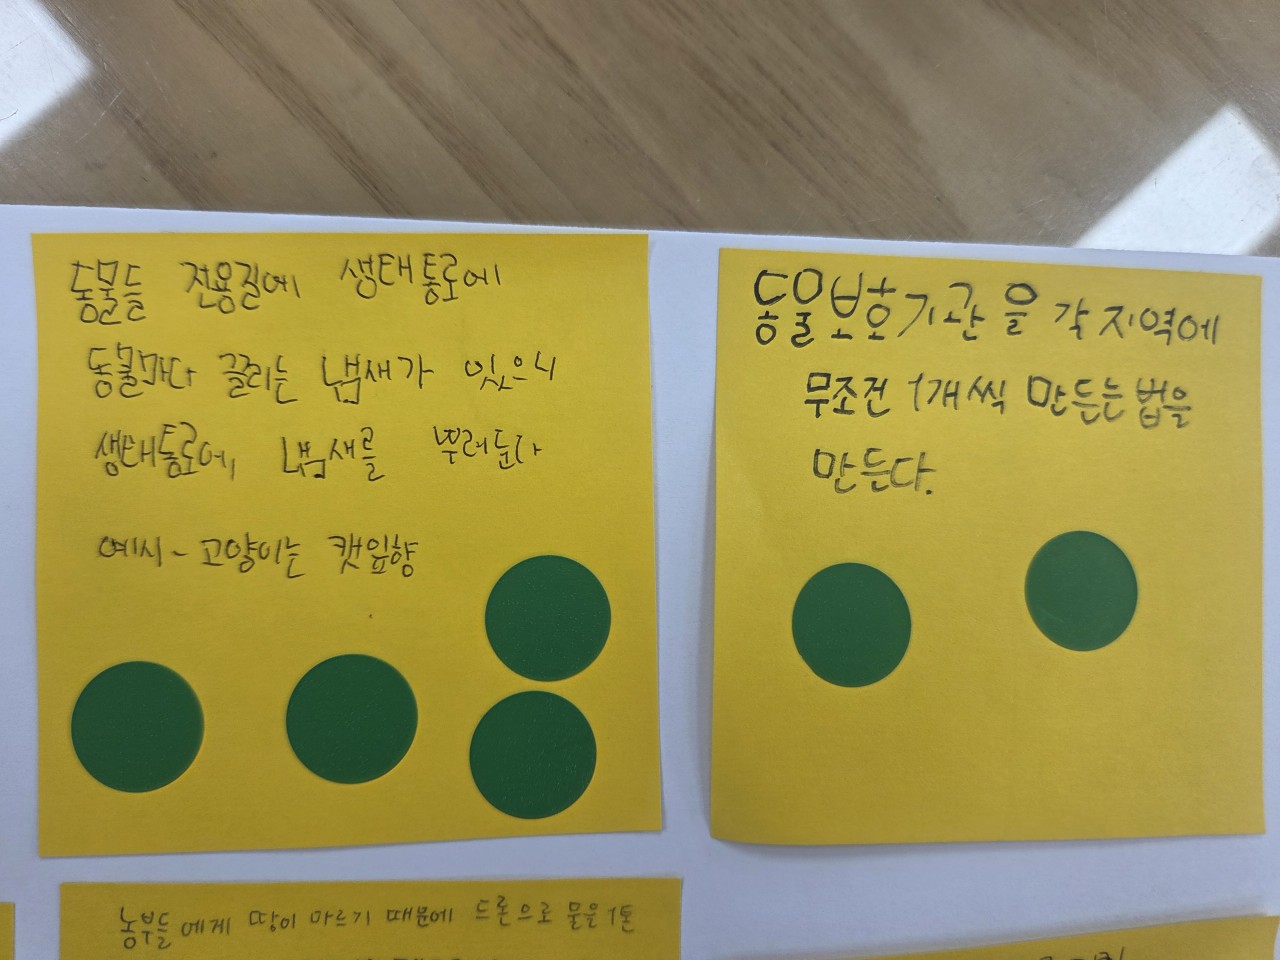 동물들 전용길에 생태통로에
동물마다 끌리는 냄새가 있으니
생태통로에 냄새를 뿌려둔다
예시~고양이는 캣잎향
동물보호기관을 각 지역에
무조건 1개씩 만든는 법을
만든다.
농부들에게 땅이 마르기 때문에 드론으로 물을 1톤